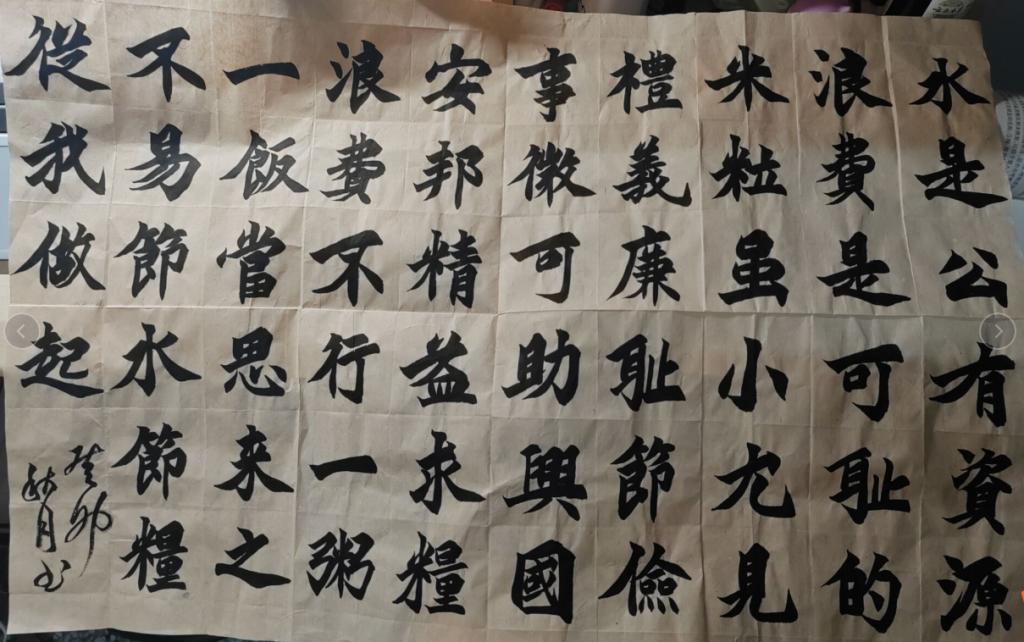 水是公有資源
浪費是可耻的
米粒虽小尤見
禮義廉耻節儉
事微可助興國
安邦精益求糧
浪費不行一粥
一飯當思来之
不易節水節糧
從我做起
癸卯
秋月书